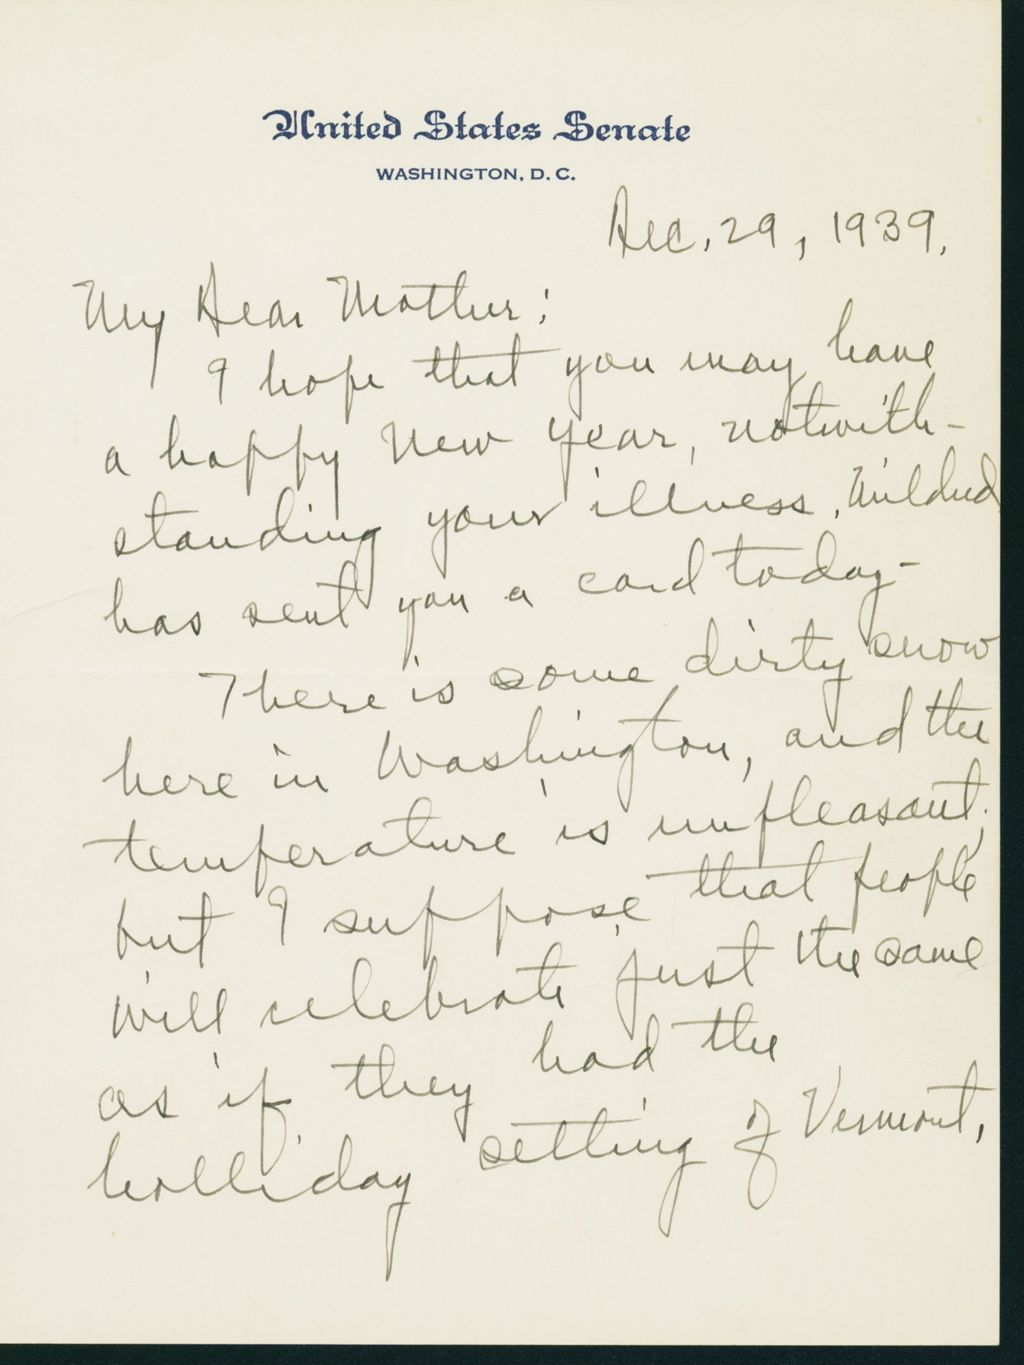 United States Senate
WASHINGTON, D. C.
Dec. 29, 1939.
My Dear Mother:
I hope that you may have
a happy New Year, notwith-
standing your illness. Mildred
has sent you a card today-
There is some dirty snow
here in Washington, and the
temperature is unpleasant;
but I suppose that people
will celebrate just the same
as if they had the
holliday setting of Vermont,